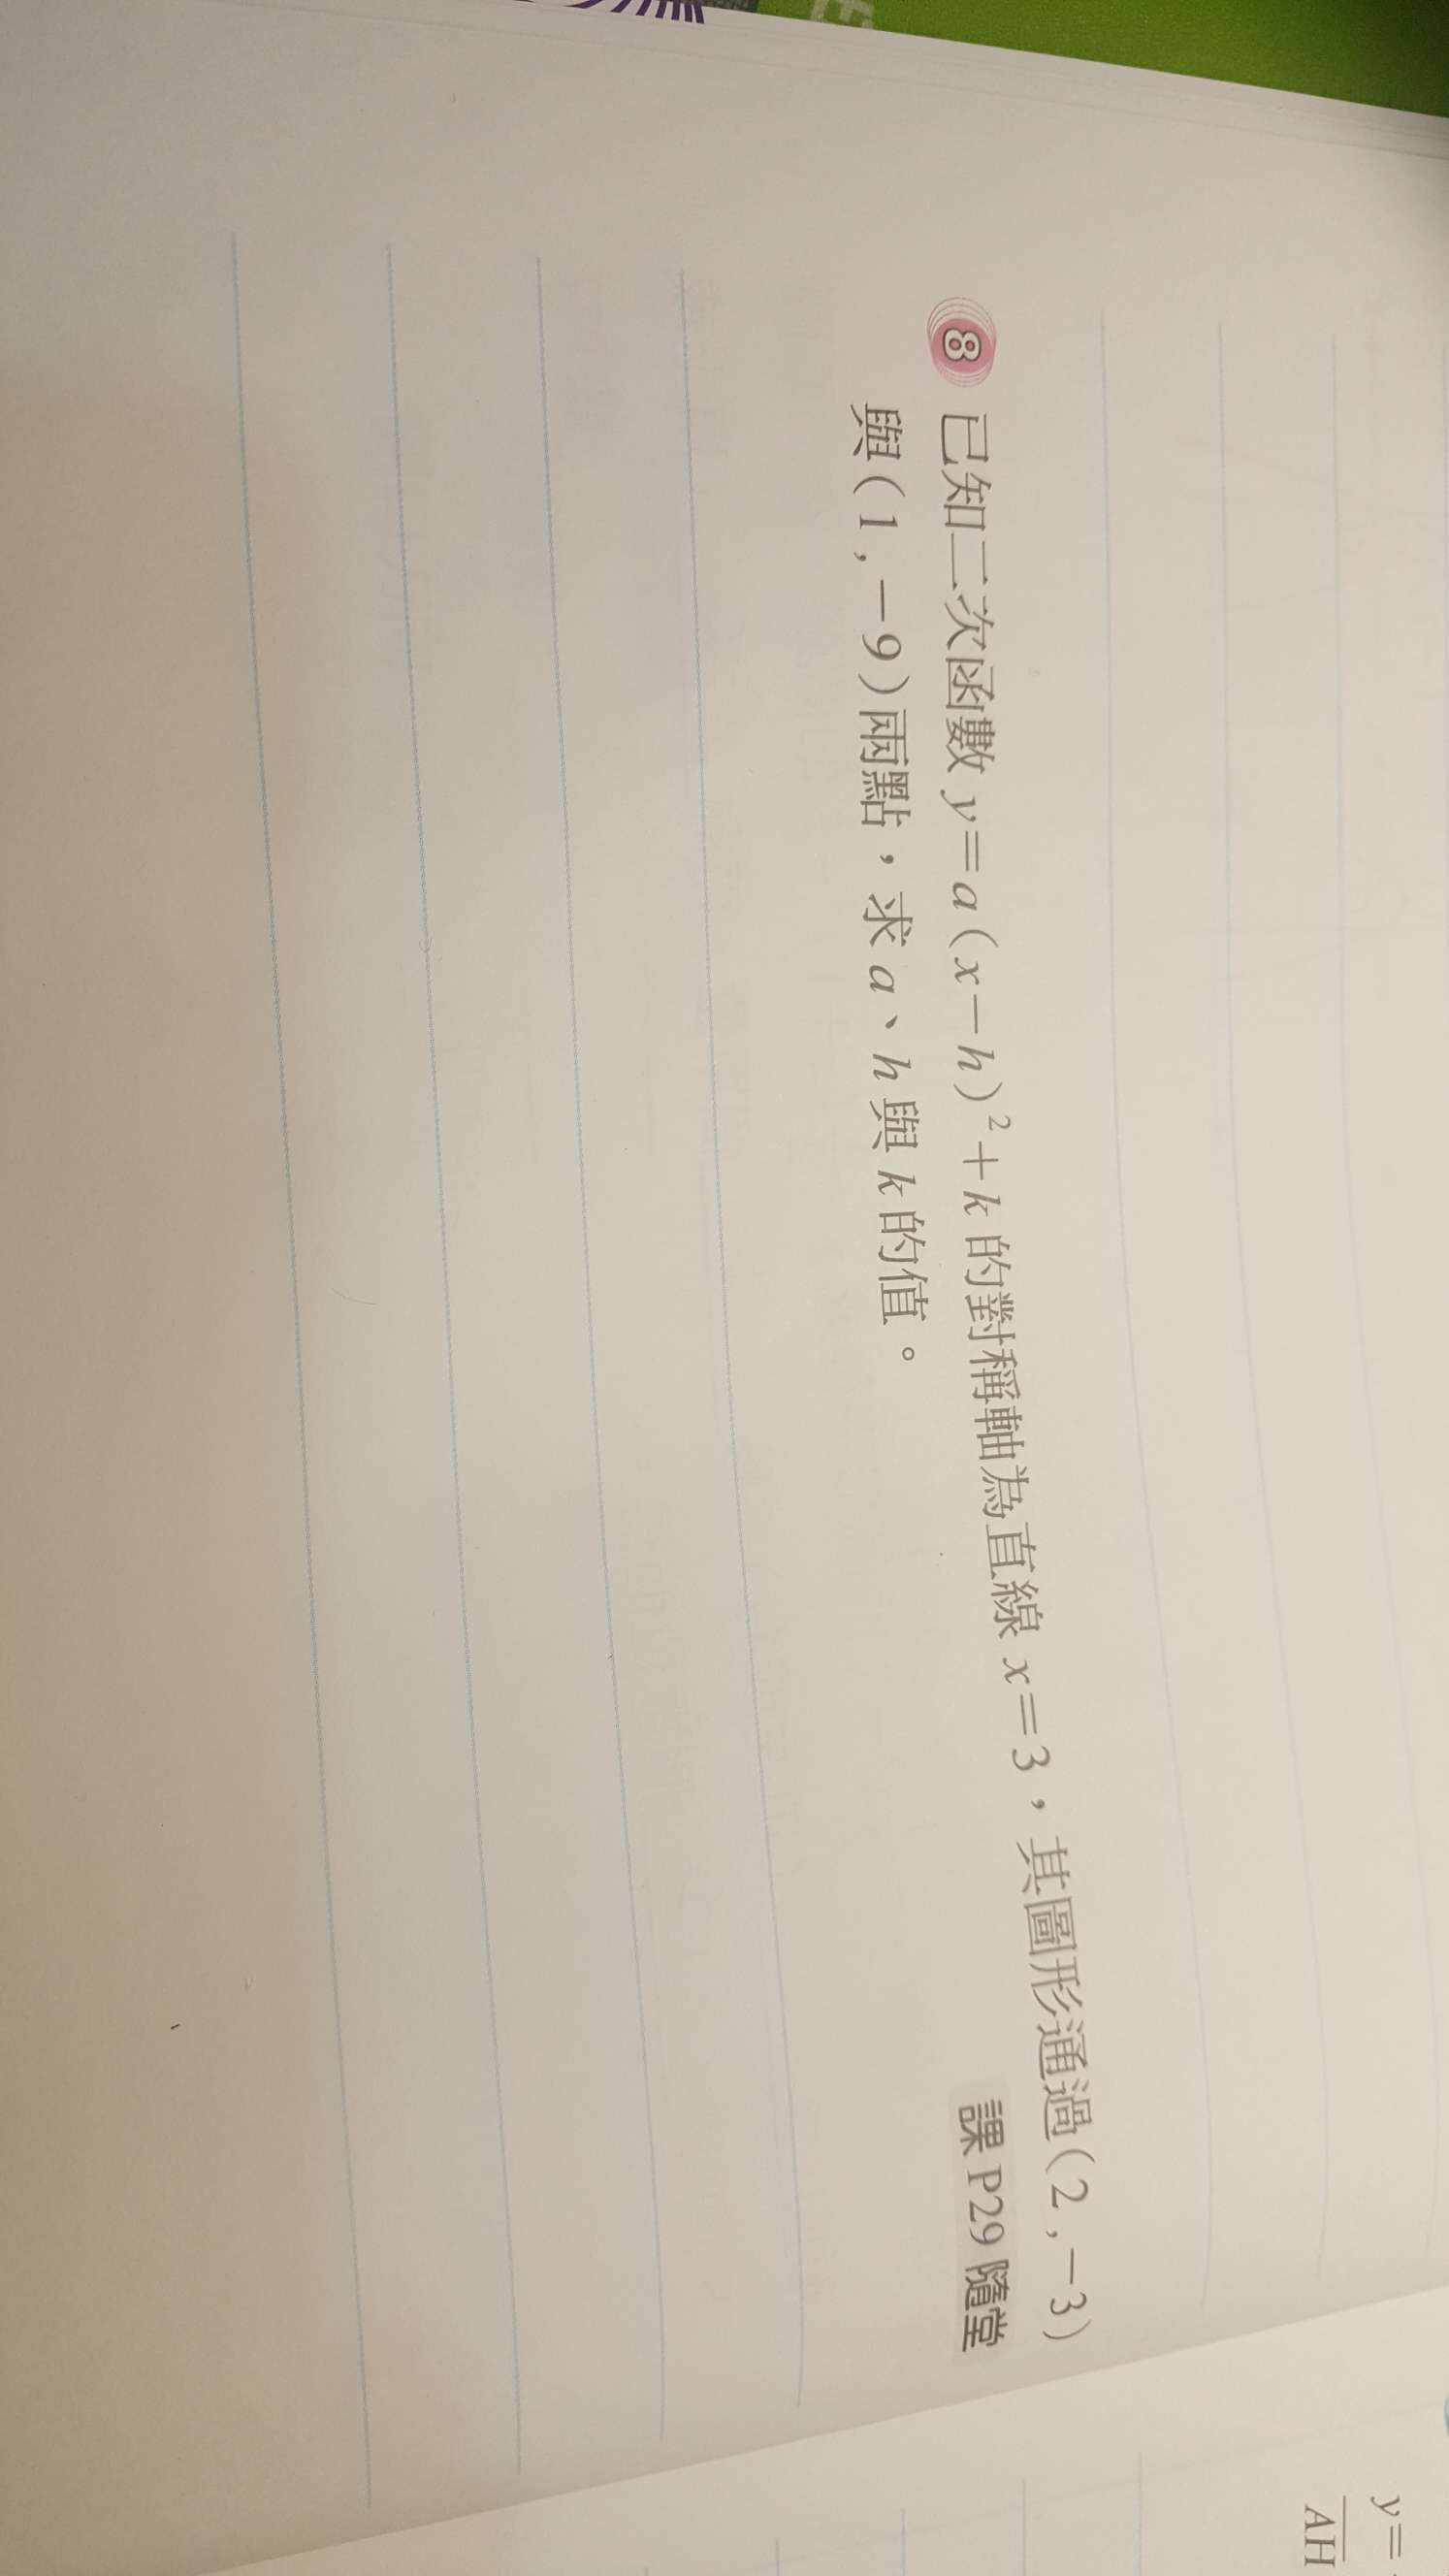 8 已知二次函數 y=a(x-h)²+k 的對稱軸為直線 x=3，其圖形通過(2,-3)
與(1,-9)兩點，求 a、h 與 k 的值。
課 P29 隨堂
y=
AH